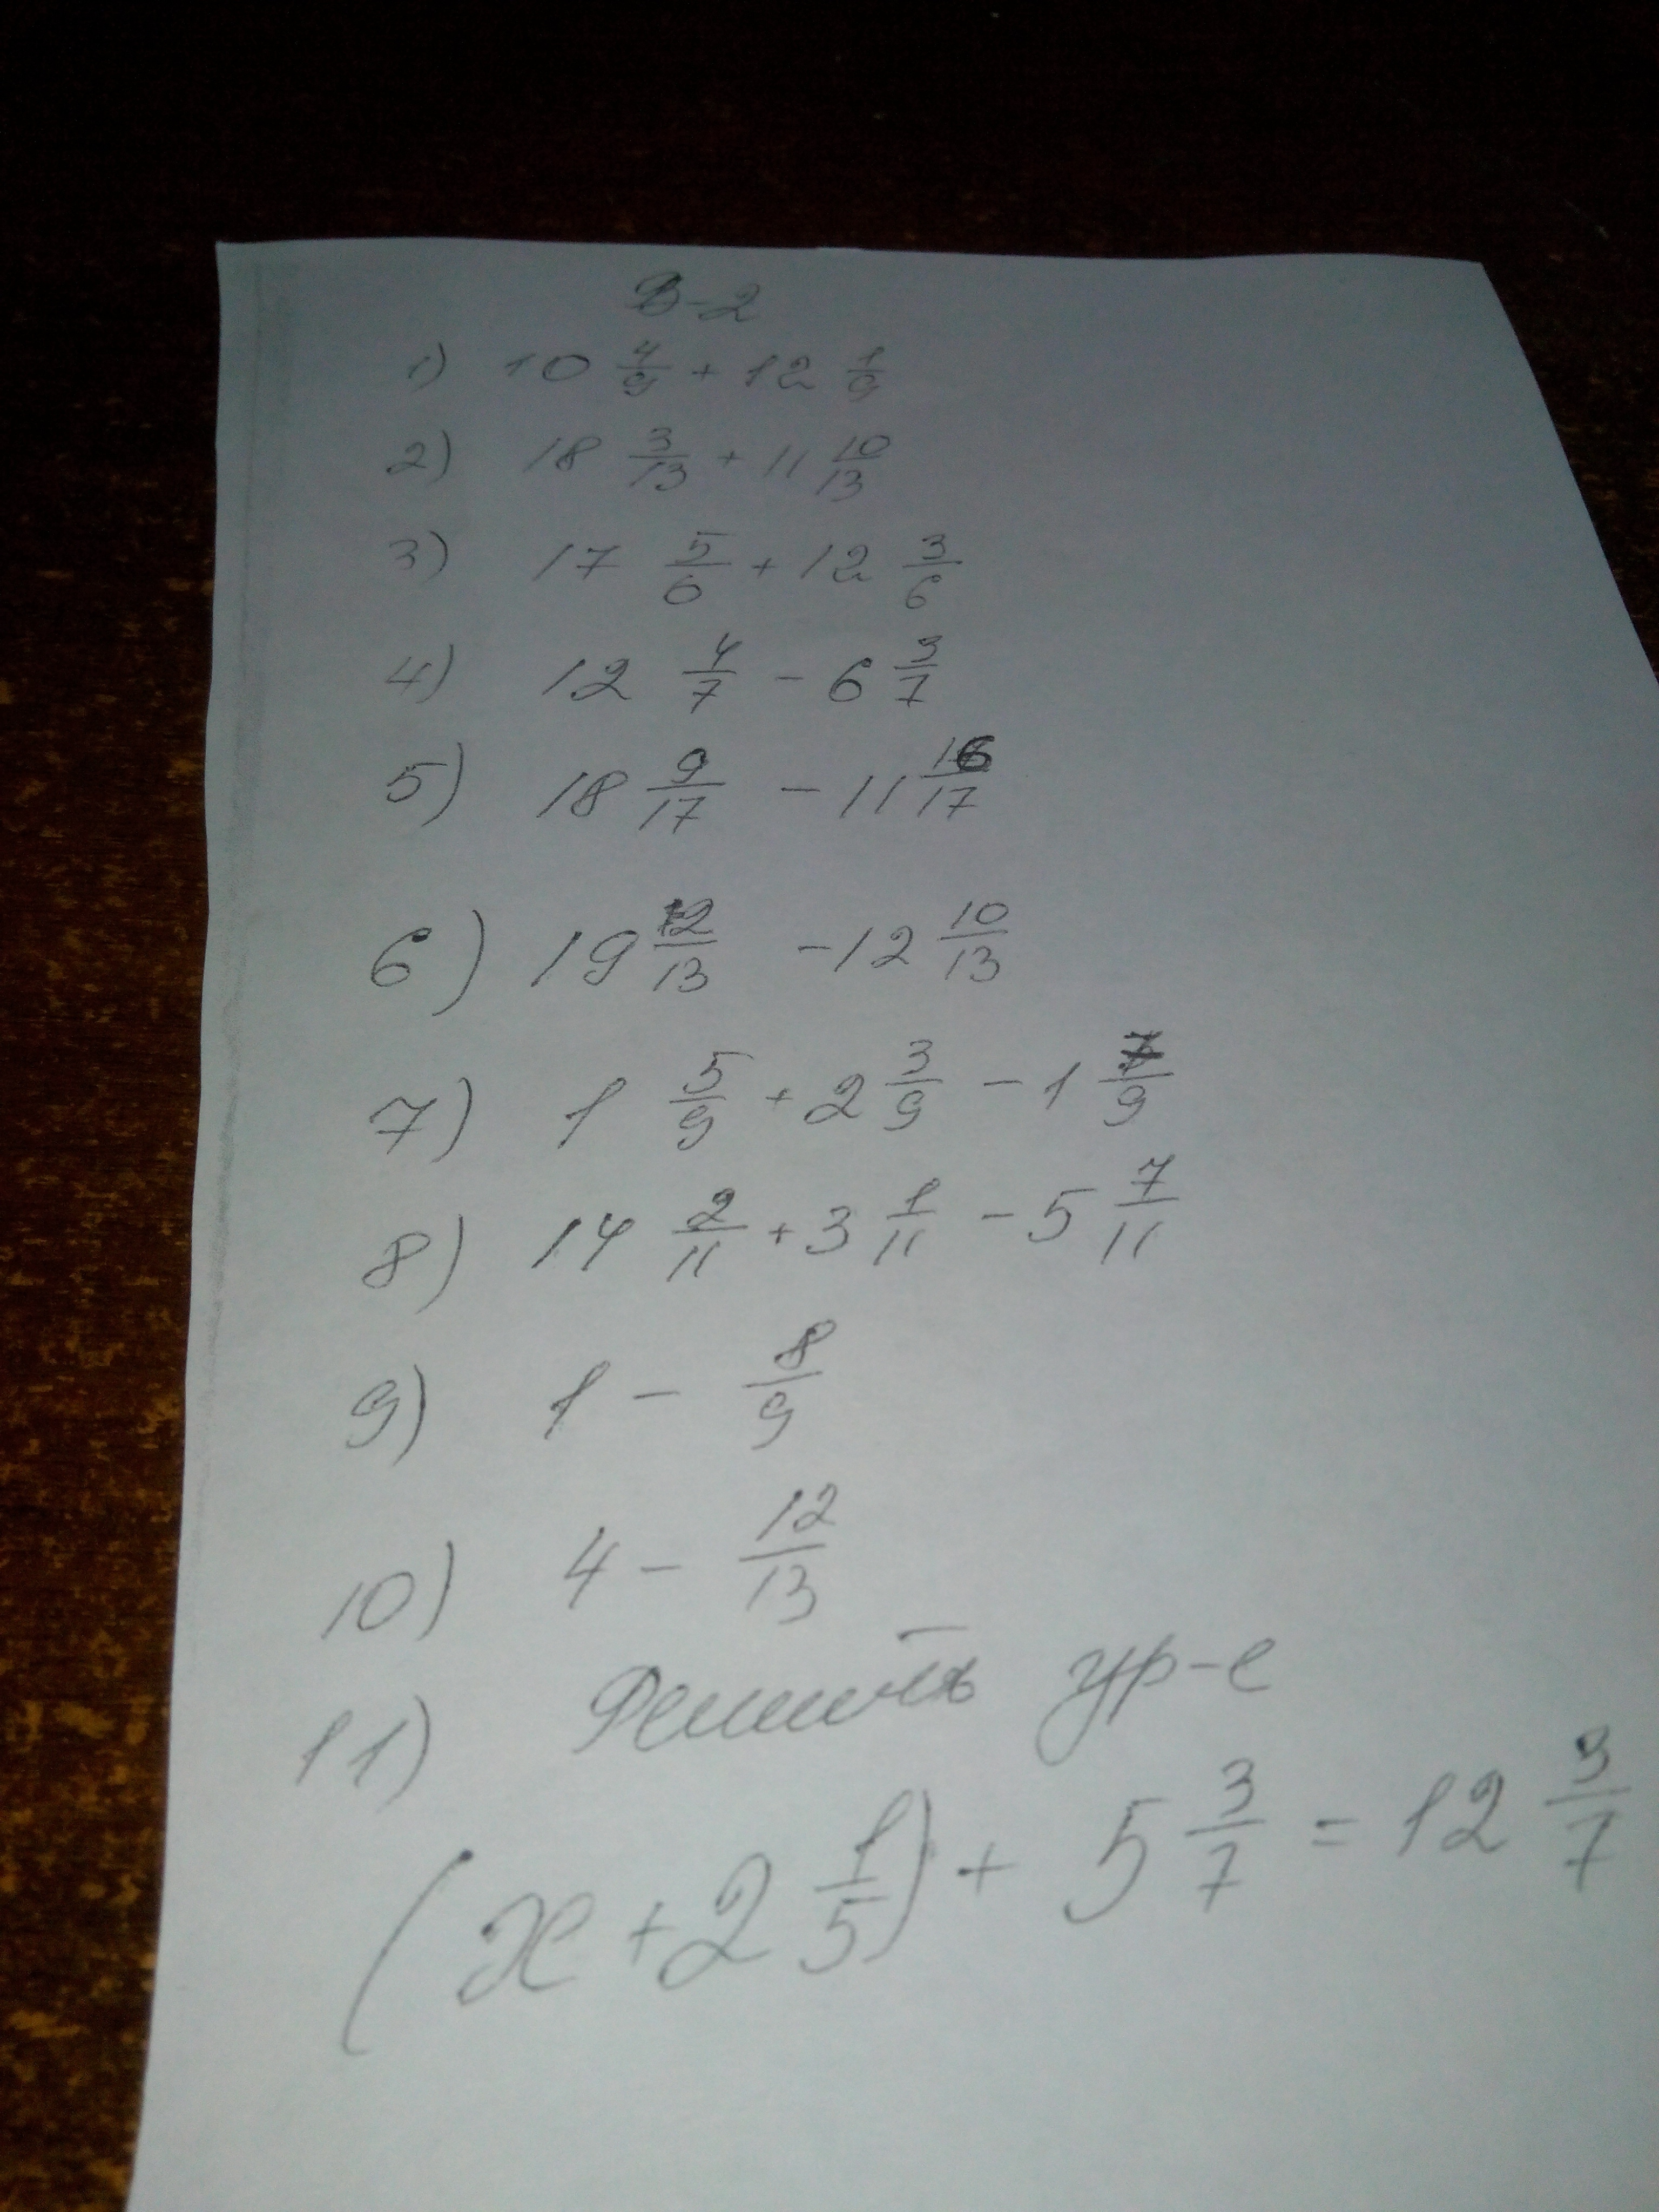 В-2
1) 10 4/9 + 12 1/9
2) 18 3/13 + 11 10/13
3) 17 5/6 + 12 3/6
4) 12 4/7 - 6 3/7
5) 18 9/17 - 11 16/17
6) 19 12/13 - 12 10/13
7) 1 5/9 + 2 3/9 - 1 7/9
8) 14 2/11 + 3 1/11 - 5 7/11
9) 1 - 8/9
10) 4 - 12/13
11) Решить ур-е
(x + 2 1/5) + 5 3/7 = 12 3/7